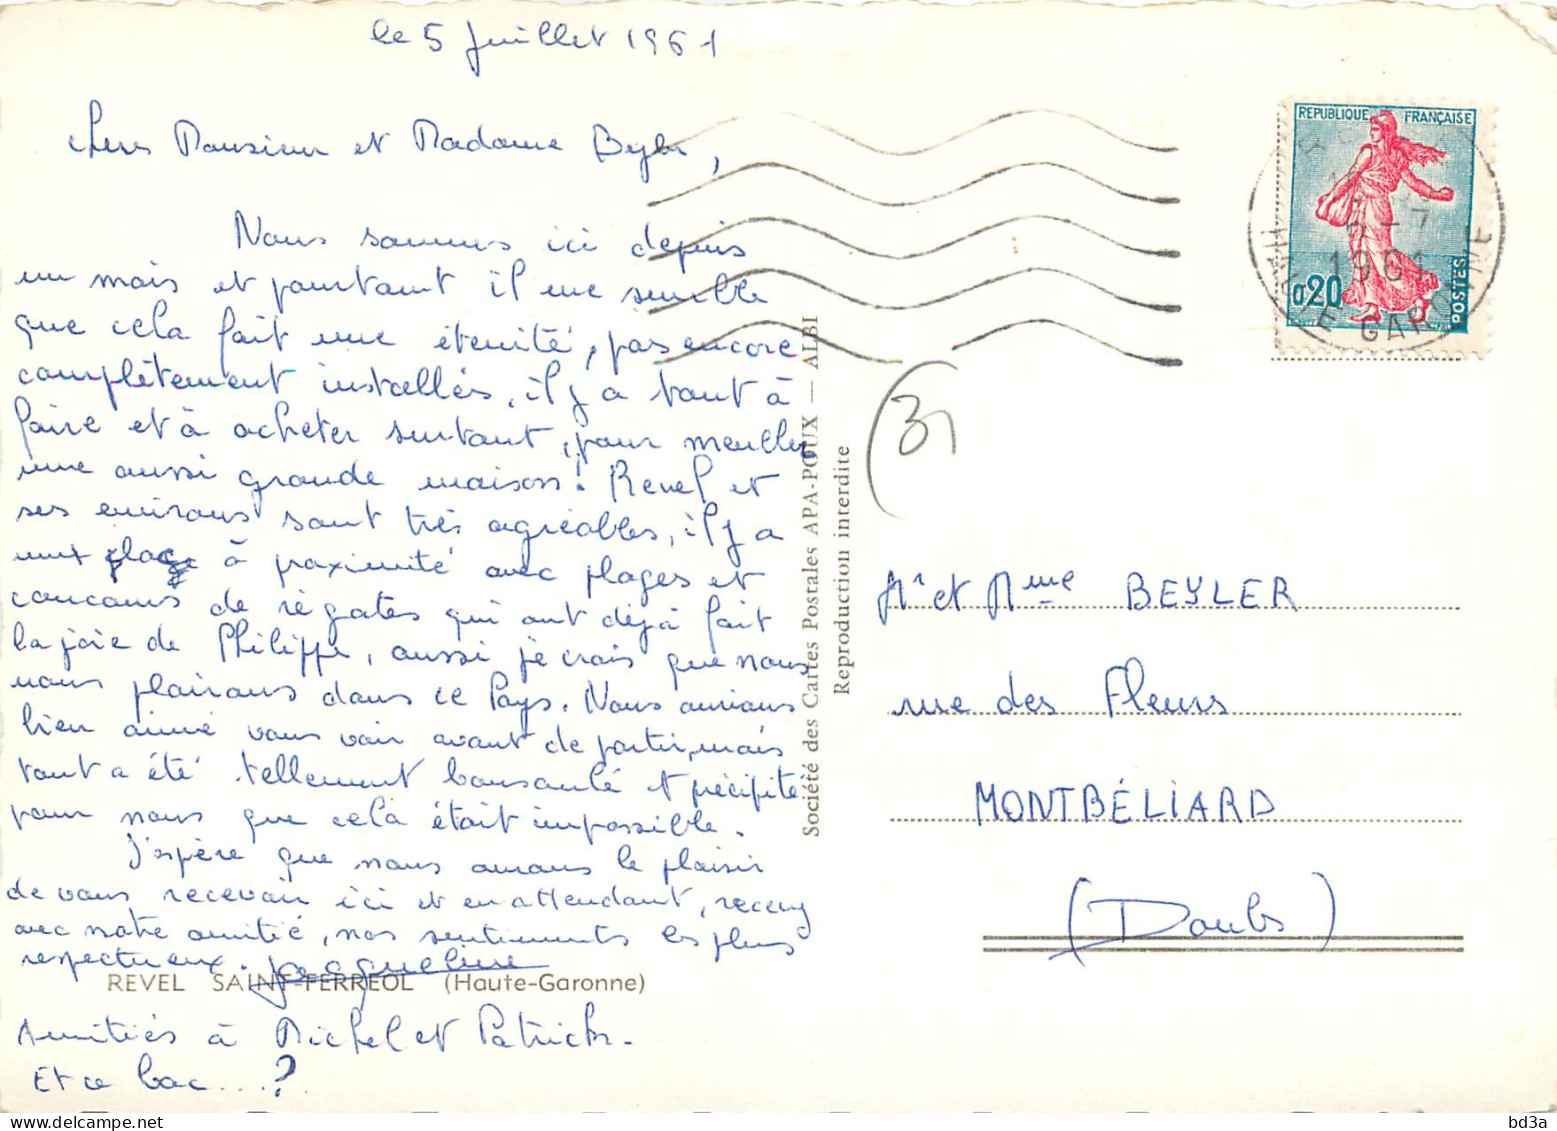 le 5 Juillet 1961
Chers Monsieur et Madame Beyler,
Nous sommes ici depuis
un mois et pourtant il me semble
que cela fait une éternité, pas encore
complètement installés, il y a tant à
faire et à acheter surtout, pour meubler
une aussi grande maison! Revel et
ses environs sont très agréables, il y a
à proximité avec plages et
concours de régates qui ont déjà fait
la joie de Philippe, aussi je crois que nous
nous plairons dans ce Pays. Nous aurions
bien aimé vous voir avant de partir, mais
tout a été tellement bousculé et précipité
pour nous que celà était impossible.
J'espère que nous aurons le plaisir
de vous recevoir ici et en attendant, recevez
avec notre amitié, nos sentiments les plus
respectueux. Jacqueline
REVEL SAINT-FERREOL (Haute-Garonne)
Amitiés à Michel et Patrick.
Et ce bac....?
Société des Cartes Postales APA-POUX — ALBI
Reproduction interdite
31
REPUBLIQUE FRANÇAISE
0,20
POSTES
-7
1961
HAUTE GARONNE
Mr et Mme BEYLER
rue des Fleurs
MONTBÉLIARD
(Doubs)
bd3a